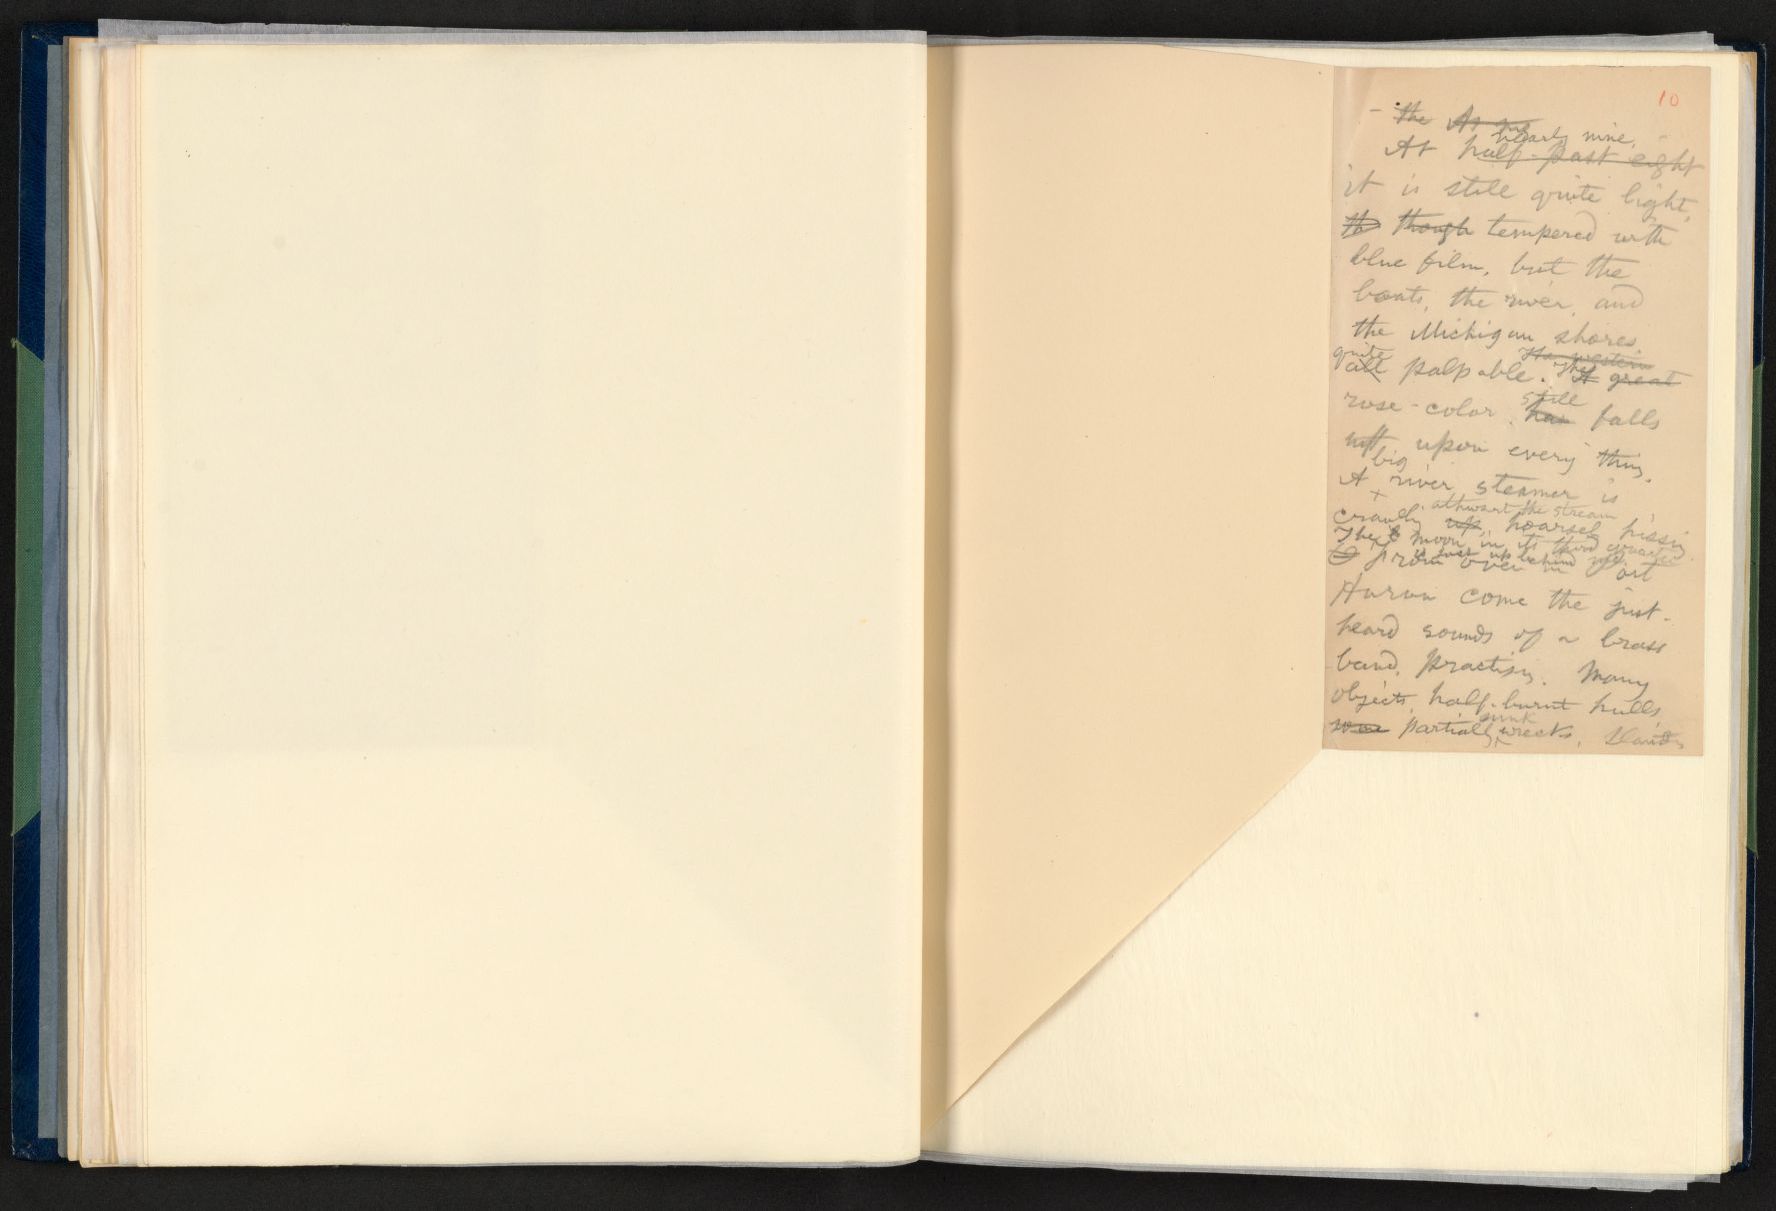 10
- the As the
nearly nine,
At half-past eight
it is still quite light,
th though tempered with
blue film, but the
boats, the river, and
the Michigan shores
quite The western
all palpable. The A great
still
rose-color has falls
soft upon every thing.
big
A river steamer is
athwart the stream
crawling up, hoarsely hissing.
The moon in its third quarter
is just up behind me
From over in Port
Huron come the just-
heard sounds of a brass
band, practising. Many
objects, half-burnt hulls,
sunk
partially wrecks, slanting